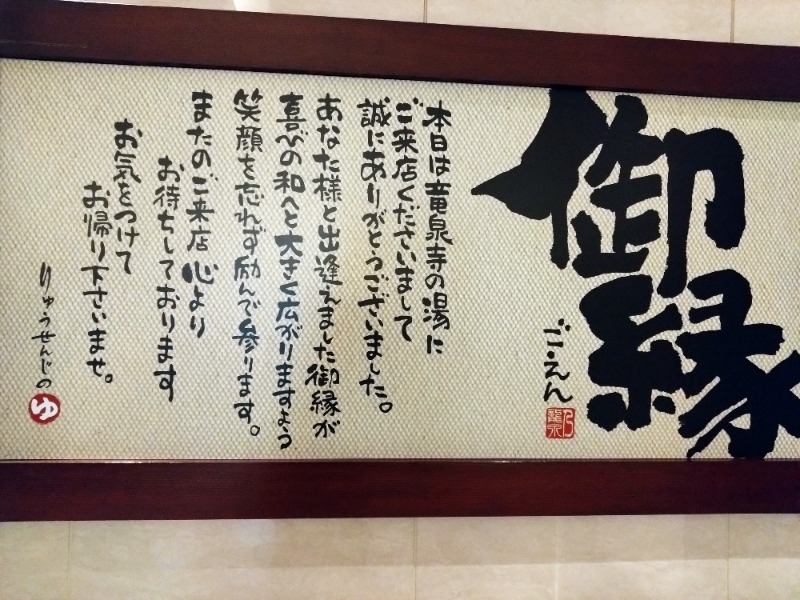 御縁
ご・えん
本日は竜泉寺の湯に
ご来店くださいまして
誠にありがとうございました。
あなた様と出逢えました御縁が
喜びの和へと大きく広がりますよう
笑顔を忘れず励んで参ります。
またのご来店 心より
お待ちしております
お気をつけて
お帰り下さいませ。
りゅうせんじの
ゆ